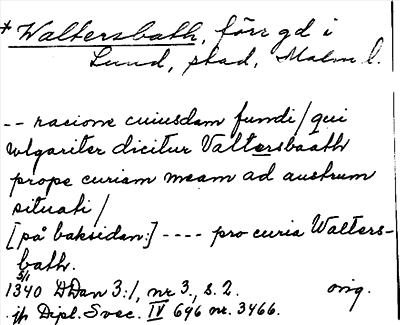 * Waltersbath, förr gd i
Lund, stad, Malm l.
-- racione cuiusdam fundi/qui
wlgariter dicitur Valtersbaath
prope curiam meam ad austrum
situati/
[på baksidan:] ---- pro curia Walters-
bath.
5/1
1340 DDan 3:1, nr 3, s. 2. orig.
jfr Dipl. Svec. IV 696 nr. 3466.